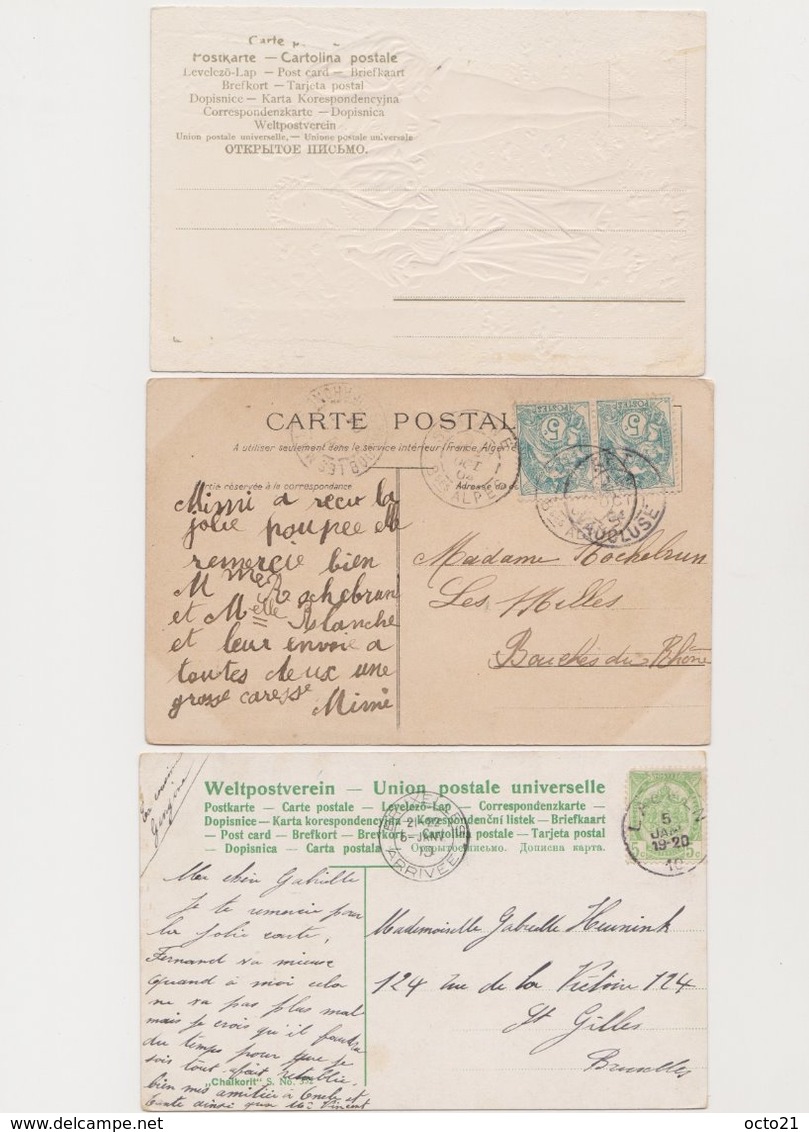 Carte
Postkarte — Cartolina postale
Levelezö-Lap — Post card — Briefkaart
Brefkort — Tarjeta postal
Dopisnice — Karta Korespondencyjna
Correspondenzkarte — Dopisnica
Weltpostverein
Union postale universelle. — Unione postale universale
ОТКРЫТОЕ ПИСЬМО.
CARTE POSTAL
A utiliser seulement dans le service intérieur (France, Algérie
tie réservée à la correspondance
Adresse du
5c
5c
VAUCLUSE
Mimi a reçu la
jolie poupée elle
remercie bien
Mme Rochebrun
et Melle Blanche
et leur envoie a
toutes deux une
grosse caresse
Mimi
Madame Rochebrun
Les Milles
Bouches du Rhône
Weltpostverein — Union postale universelle
Postkarte — Carte postale — Levelező-Lap — Correspondenzkarte —
Dopisnice — Karta korespondencyjna — Korespondenční listek — Briefkaart
— Post card — Brefkort — Brevkort — Cartolina postale — Tarjeta postal
— Dopisnica — Carta postala — Открытое письмо. Дописна карта.
BRUXELLES
21-22
5-JANV
ARRIVÉE
LAEKEN
5
JAN
19-20
10
5c 5c
Ma chère Gabrielle
Je te remercie pour
la jolie carte,
Fernand va mieux
quand à moi cela
ne va pas plus mal
mais je crois qu'il faudra
du temps pour que je
sois tout à fait rétablie,
bien mes amitiés à Oncle et
Tante ainsi que Vincent
Mademoiselle Gabrielle Heunink
124 rue de la Victoire 124
St Gilles
Bruxelles
„Chalkorit" S. No. 332
delcampe.net
octo21